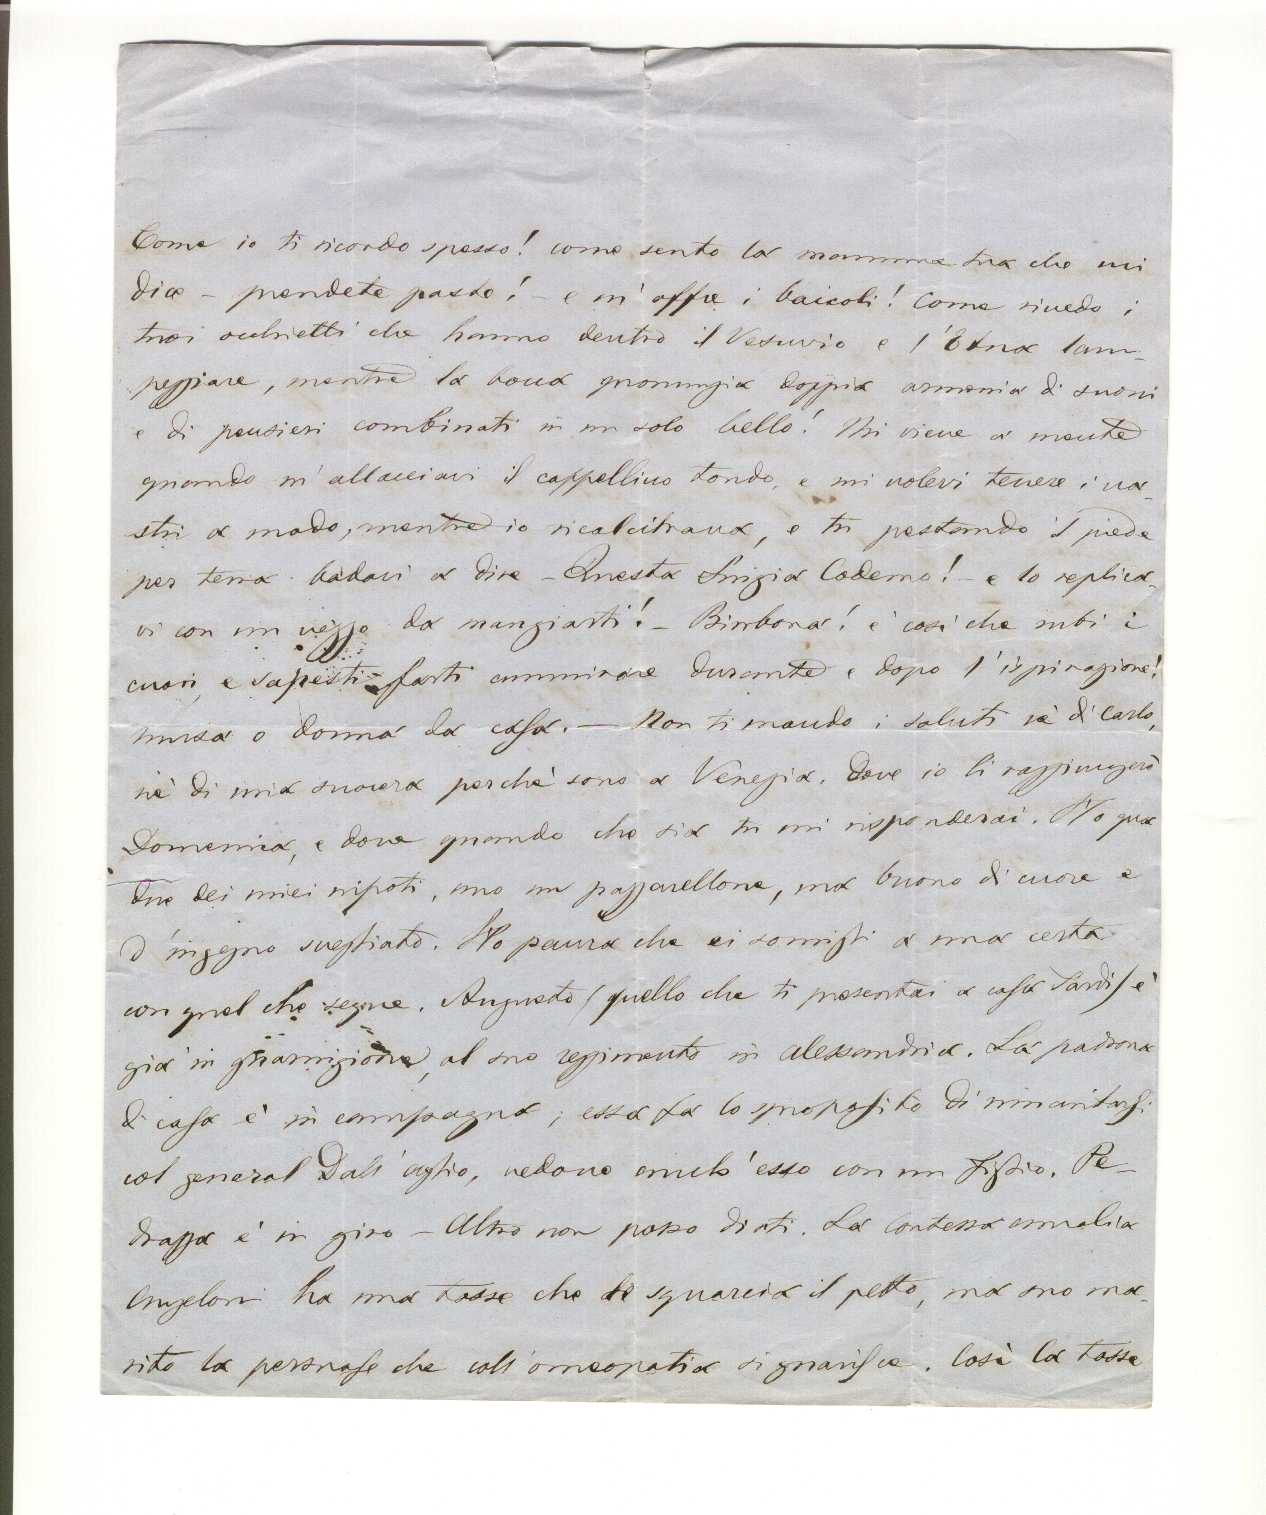 Come io ti ricordo spesso! come sento la mamma tua che mi
dice – prendete pasto! – e m'offre i baicoli! Come rivedo i
tuoi occhietti che hanno dentro il Vesuvio e l'Etna lam-
peggiare, mentre la bocca pronunzia doppia armonia di suoni
e di pensieri combinati in un solo bello! Mi viene a mente
quando m'allacciavi il cappellino tondo, e mi volevi tenere i na-
stri a modo, mentre io ricalcitrava, e tu pestando il piede
per terra badavi a dire – Questa Luigia Codemo! – e lo replica-
vi con un vezzo da mangiarti! – Birbona! è così che rubi i
cuori, e sapesti farti ammirare durante e dopo l'ispirazione!
musa o donna da casa. — Non ti mando i saluti nè di Carlo,
nè di mia suocera perchè sono a Venezia. dove io li raggiungerò
Domenica, e dove quando che sia tu mi risponderai. Ho qua
due dei miei nipoti, uno un pazzarellone, ma buono di cuore e
d'ingegno svegliato. Ho paura che ei somigli a una certa
con quel che segue. Augusto (quello che ti presentai a casa Sardi) è
già in guarnigione, al suo reggimento in Alessandria. La padrona
di casa è in campagna; essa fa lo sproposito di rimaritarsi
col general Dall'Aglio, vedovo anch'esso con un figlio. Pe-
drazza è in giro – Altro non posso dirti. La Contessa Amalia
Angeloni ha una tosse che le squarcia il petto, ma suo ma-
rito la persuase che coll'omeopatia si guarisce. Così la tosse